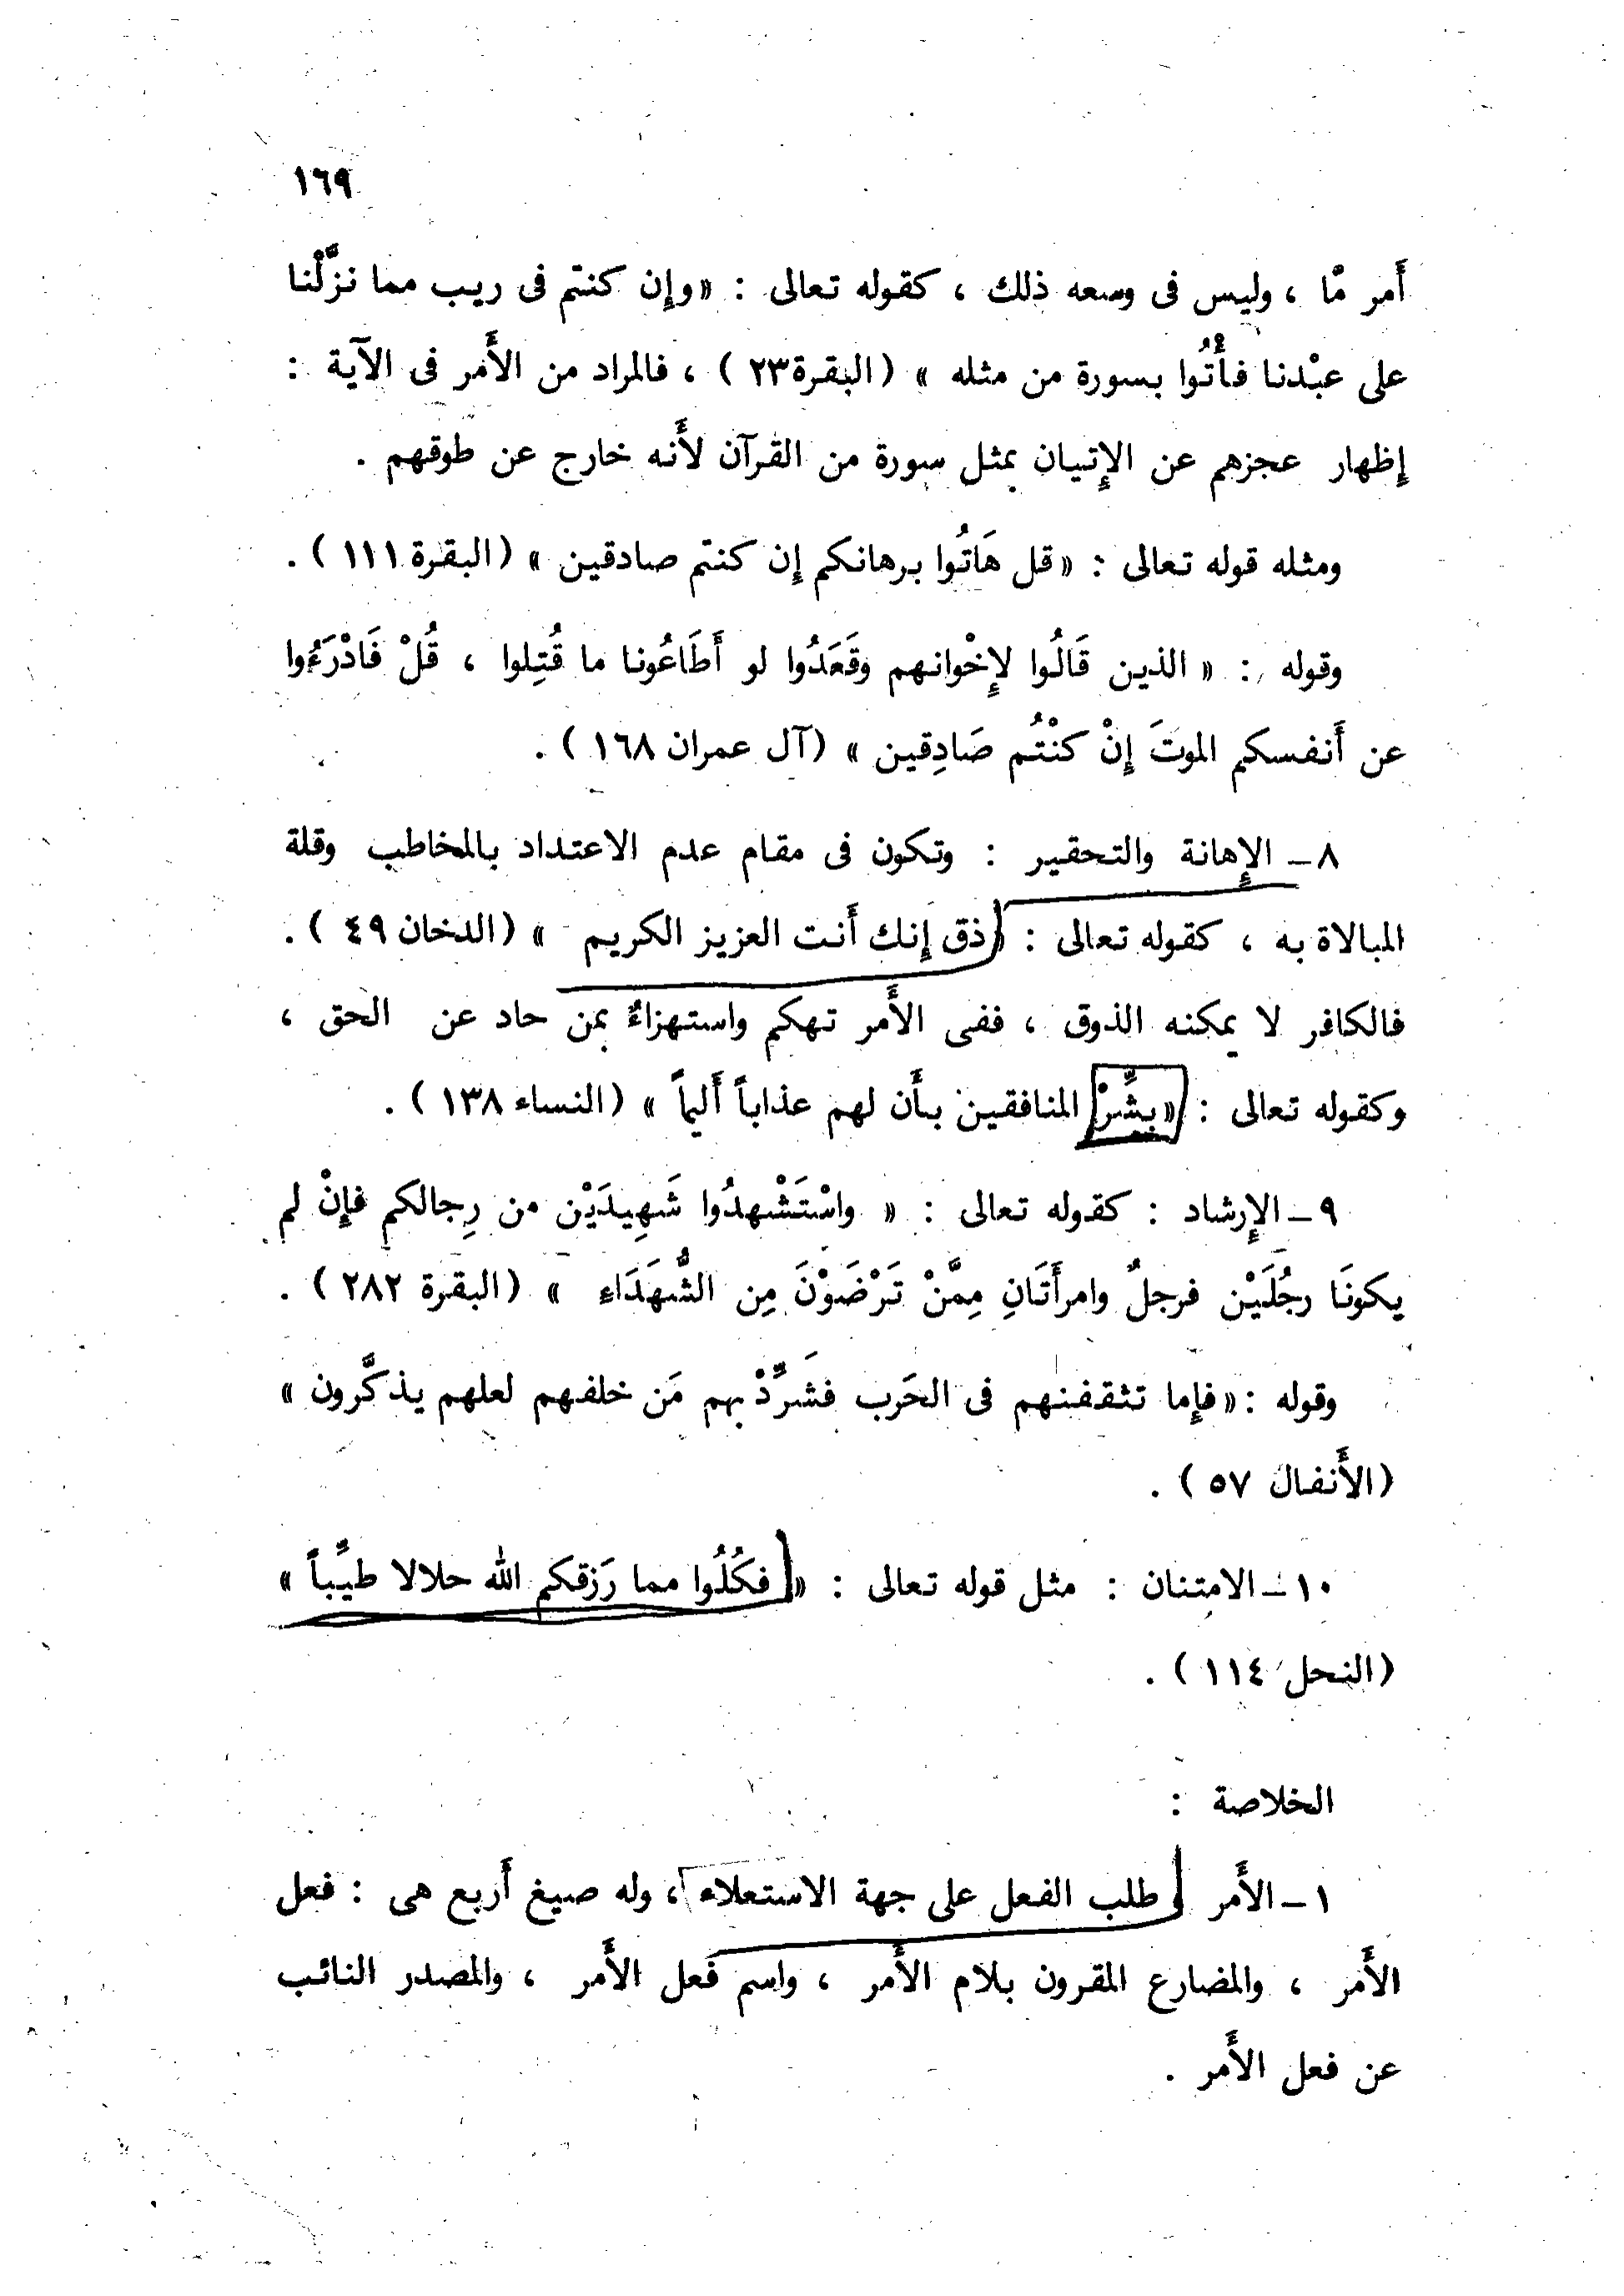 ١٦٩
أَمر مّا ، وليس فى وسعه ذلك ، كقوله تعالى : «وإِن كنتم فى ريب مما نزَّلْنا
على عبْدنا فأْتُوا بسورة من مثله » (البقرة٢٣ ) ، فالمراد من الأَمر فى الآية :
إِظهار عجزهم عن الإِتيان بمثل سورة من القرآن لأَنه خارج عن طوقهم .
ومثله قوله تعالى : «قل هَاتُوا برهانكم إِن كنتم صادقين » (البقرة ١١١ ) .
وقوله : « الذين قَالُوا لإِخْوانهم وقَعَدُوا لو أَطَاعُونا ما قُتِلوا ، قُلْ فَادْرَءُوا
عن أَنفسكم الموتَ إِنْ كنْتُم صَادِقين » (آل عمران ١٦٨ ) .
٨ – الإِهانة والتحقير : وتكون فى مقام عدم الاعتداد بالمخاطب وقلة
المبالاة به ، كقوله تعالى : «ذق إِنك أَنت العزيز الكريم » (الدخان ٤٩ ) .
فالكافر لا يمكنه الذوق ، ففى الأَمر تهكم واستهزاءٌ بمن حاد عن الحق ،
وكقوله تعالى : «بشِّرْ المنافقين بأَن لهم عذاباً أَليماً » (النساء ١٣٨ ) .
٩ – الإِرشاد : كقوله تعالى : « واسْتَشْهدُوا شَهِيدَيْن من رِجالكم فإِنْ لم
يكونَا رجُلَيْن فرجلٌ وامرأَتَانِ مِمَّنْ تَرْضَوْنَ مِن الشُّهَدَاءِ » (البقرة ٢٨٢ ) .
وقوله : «فإِما تثقفنهم فى الحَرب فشَرِّدْ بهم مَن خلفهم لعلهم يذكَّرون »
(الأَنفال ٥٧ ) .
١٠ – الامتنان : مثل قوله تعالى : «فكُلُوا مما رَزقكم الله حلالا طيِّباً »
(النحل ١١٤ ) .
الخلاصة :
١ – الأَمر طلب الفعل على جهة الاستعلاء ، وله صيغ أَربع هى : فعل
الأَمر ، والمضارع المقرون بلام الأَمر ، واسم فعل الأَمر ، والمصدر النائب
عن فعل الأَمر .